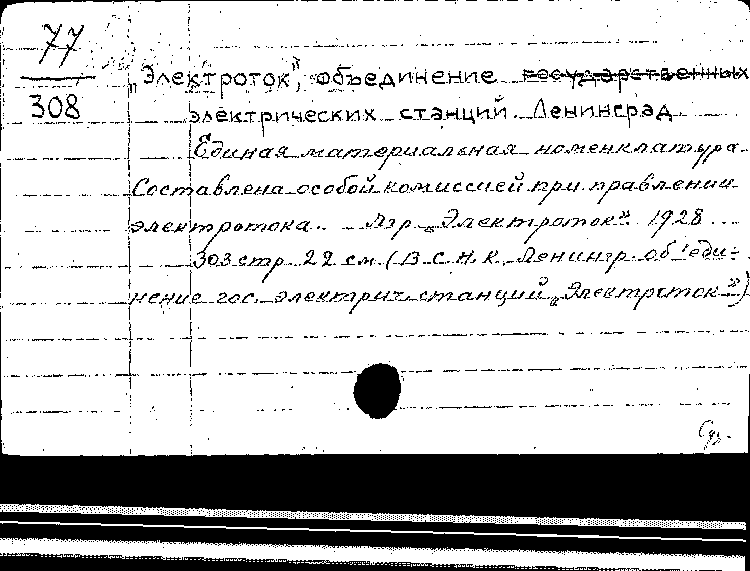 77
308
„Электроток", объединение государственных
электрических станций. Ленинград.
Единая материальная номенклатура.
Составлена особой комиссией при правлении
электротока. Лгр „Электроток" 1928
303 стр 22 см. (В С Н Х, Ленингр. об'еди-
нение гос. электрич. станций „Электроток")